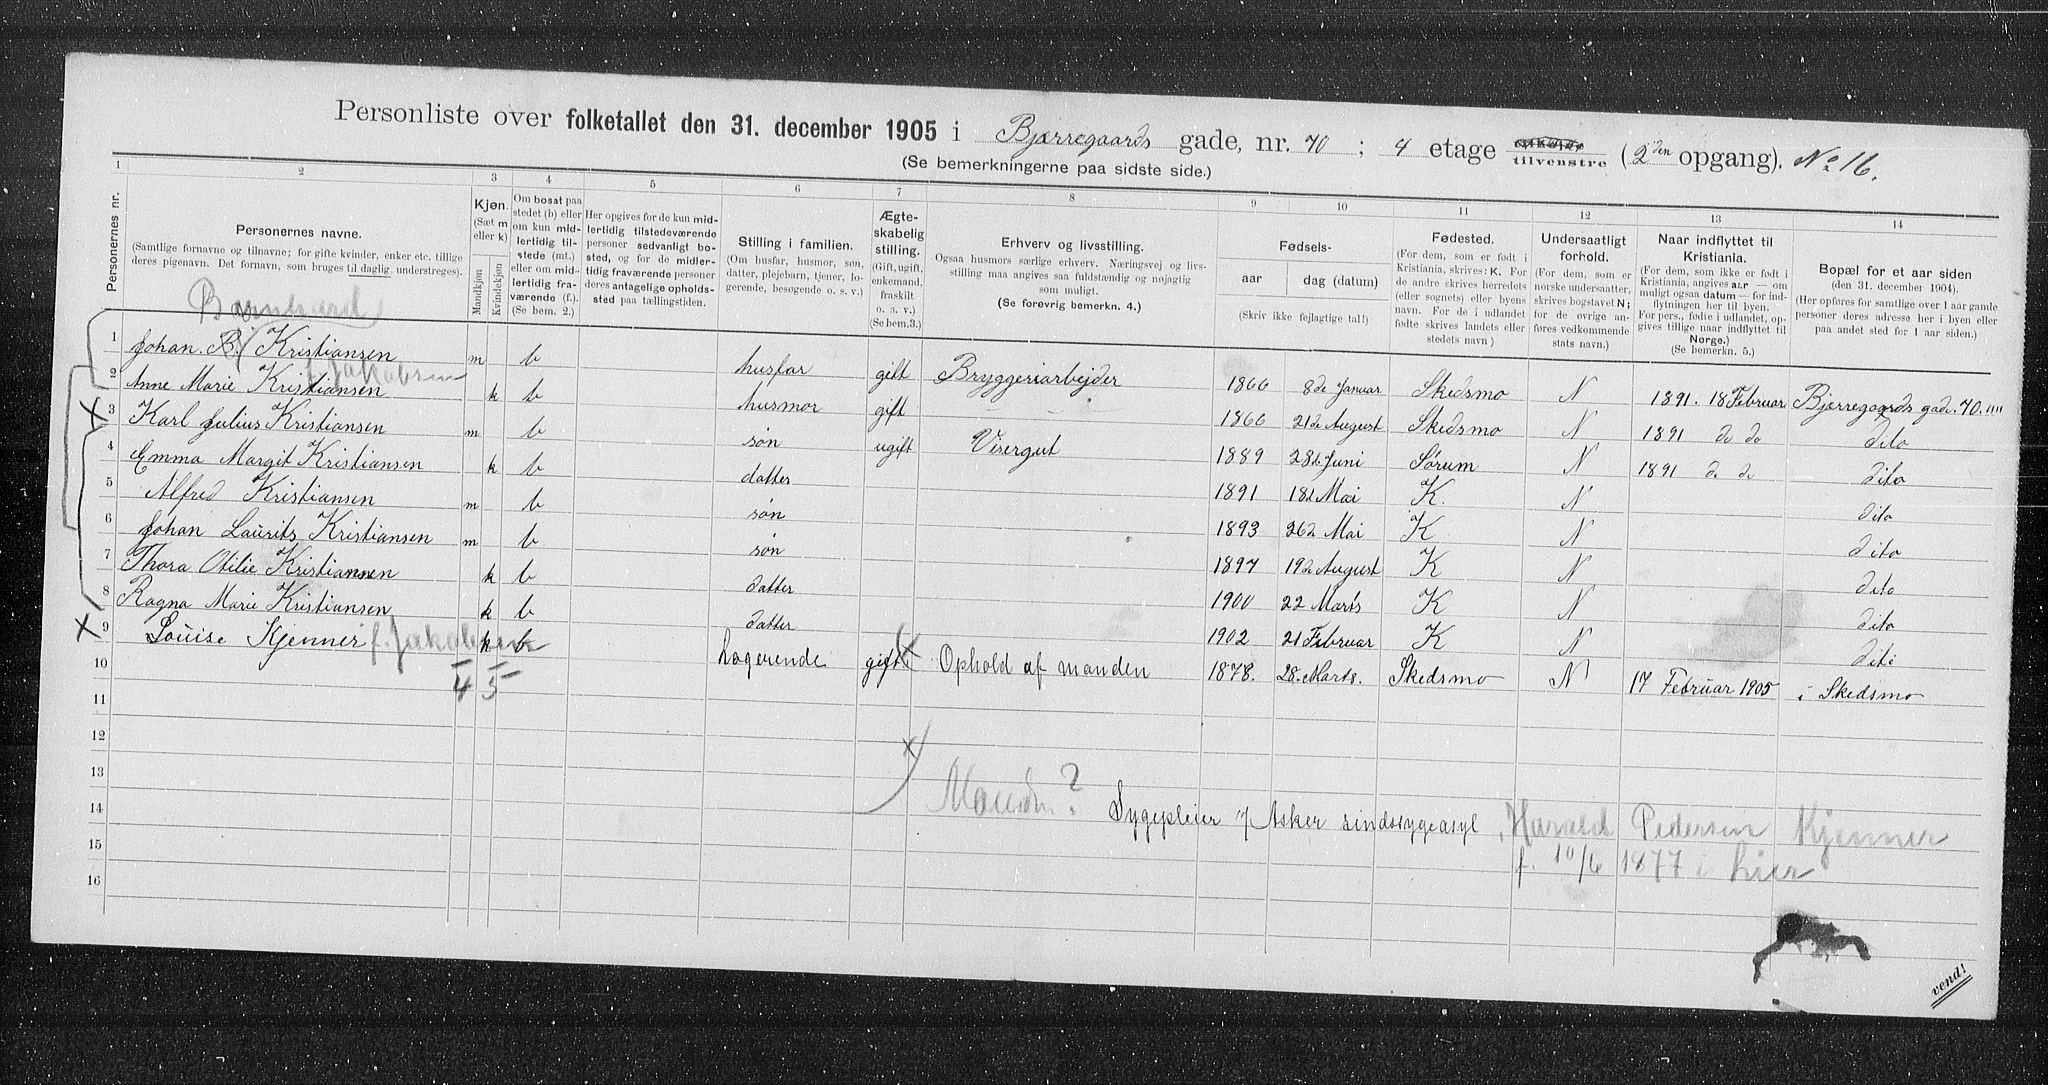 Personliste over folketallet den 31. december 1905 i Bjerregaards gade, nr. 70 ; 4 etage tilvenstre (2den opgang). No 16.
(Se bemerkningerne paa sidste side.)
1 2 3 4 5 6 7 8 9 10 11 12 13 14
Personernes nr.
Personernes navne.
(Samtlige fornavne og tilnavne; for gifte kvinder, enker etc. tillige
deres pigenavn. Det fornavn, som bruges til daglig, understreges).
Kjøn.
(Sæt m
eller k)
Mandkjøn
Kvindekjøn
Om bosat paa
stedet (b) eller
om kun mid-
lertidig til-
stede (mt.)
eller om mid-
lertidig fra-
værende (f.).
(Se bem. 2.)
Her opgives for de kun mid-
lertidig tilstedeværende
personer sedvanlig bo-
sted, og for de midler-
tidig fraværende personer
deres antagelige opholds-
sted paa tællingstiden.
Stilling i familien.
(Om husfar, husmor, søn,
datter, plejebarn, tjener, lo-
gerende, besøgende o. s. v.)
Ægte-
skabelig
stilling.
(Gift, ugift,
enkemand,
fraskilt
o. s. v.)
(Se bem.3.)
Erhverv og livsstilling.
Ogsaa husmors særlige erhverv. Næringsvej og livs-
stilling maa angives saa fuldstændig og nøjagtig
som muligt.
(Se forøvrig bemerkn. 4.)
Fødsels-
aar
dag (datum)
(Skriv ikke fejlagtige tal!)
Fødested.
(For dem, som er født i
Kristiania, skrives: K. For
de andre skrives herredets
(eller sognets) eller byens
navn. For de i udlandet
fødte skrives landets eller
stedets navn)
Undersaatligt
forhold.
(For dem, som er
norske undersaatter,
skrives bogstavet N;
for de øvrige an-
føres vedkommende
stats navn.)
Naar indflyttet til
Kristiania.
(For dem, som ikke er født i
Kristiania, angives aar — om
muligt ogsaa datum — for ind-
flytningen her til byen.
For pers., fødte i udlandet, op-
gives tillige naar indflyttet til
Norge.)
(Se bemerkn. 5.)
Bopæl for et aar siden
(den 31. december 1904).
(Her opføres for samtlige over 1 aar gamle
personer deres adresse her i byen eller
paa andet sted for 1 aar siden.)
Bernhard
1 Johan. B. Kristiansen m b husfar gift Bryggeriarbejder 1866 8de Januar Skedsmo N 1891. 18 Februar Bjerregaards gade. 70. """
f. Jakobsen
2 Anne Marie Kristiansen k b husmor gift 1866 21de August Skedsmo N 1891 do do dito
3 Karl Julius Kristiansen m b søn ugift Visergut 1889 28de Juni Sørum N 1891 do do dito
4 Emma Margit Kristiansen k b datter 1891 18d Mai K. N dito
5 Alfred Kristiansen m b søn 1893 26d Mai K N dito
6 Johan Laurits Kristiansen m b søn 1897 19de August K N dito
7 Thora Otilie Kristiansen k b datter 1900 22 Marts K N dito
8 Ragna Marie Kristiansen k b datter 1902 21 Februar K N dito
9 Louise Kjenner f. Jakobsen k b logerende gift Ophold af manden 1878. 28. Marts. Skedsmo N 17 Februar 1905 i Skedsmo
10
4 5
11
12
13
Manden? Sygepleier v/ Asker sindssygeasyl, Harald Pedersen Kjenner
14
f. 10/6 1877 i Lier
15
16
vend!